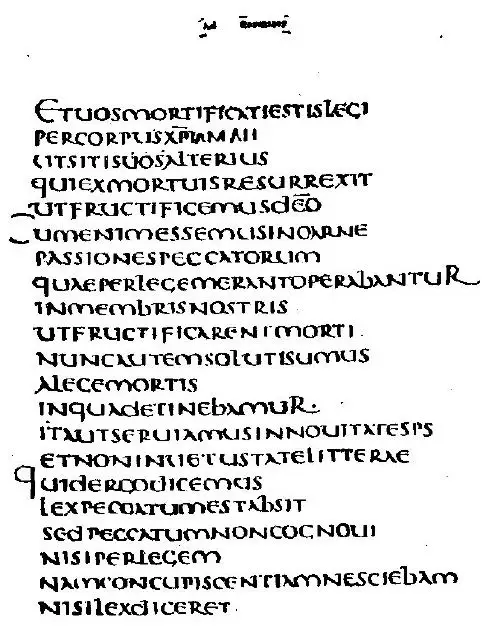 ETUOSMORTIFICATIESTISLEGI
PERCORPUSXPI
UTSITISUOSALTERIUS
QUIEXMORTUISRESURREXIT
UTFRUCTIFICEMUSDEO
PASSIONESPECCATORUM
QUAEPERLEGEMERANTOPERABANTUR
INMEMBRISNOSTRIS
UTFRUCTIFICARENTMORTI
NUNCAUTEMSOLUTISUMUS
ALEGEMORTIS
INQUADETINEBAMUR
ITAUTSERUIAMUSINNOUITATESPS
ETNONINUETUSTATELITTERAE
QUIDERGODICEMUS
LEXPECCATUMESTABSIT
SEDPECCATUMNONCOGNOUI
NISIPERLEGEM
NAMCONCUPISCENTIAMNESCIEBAM
NISILEXDICERET